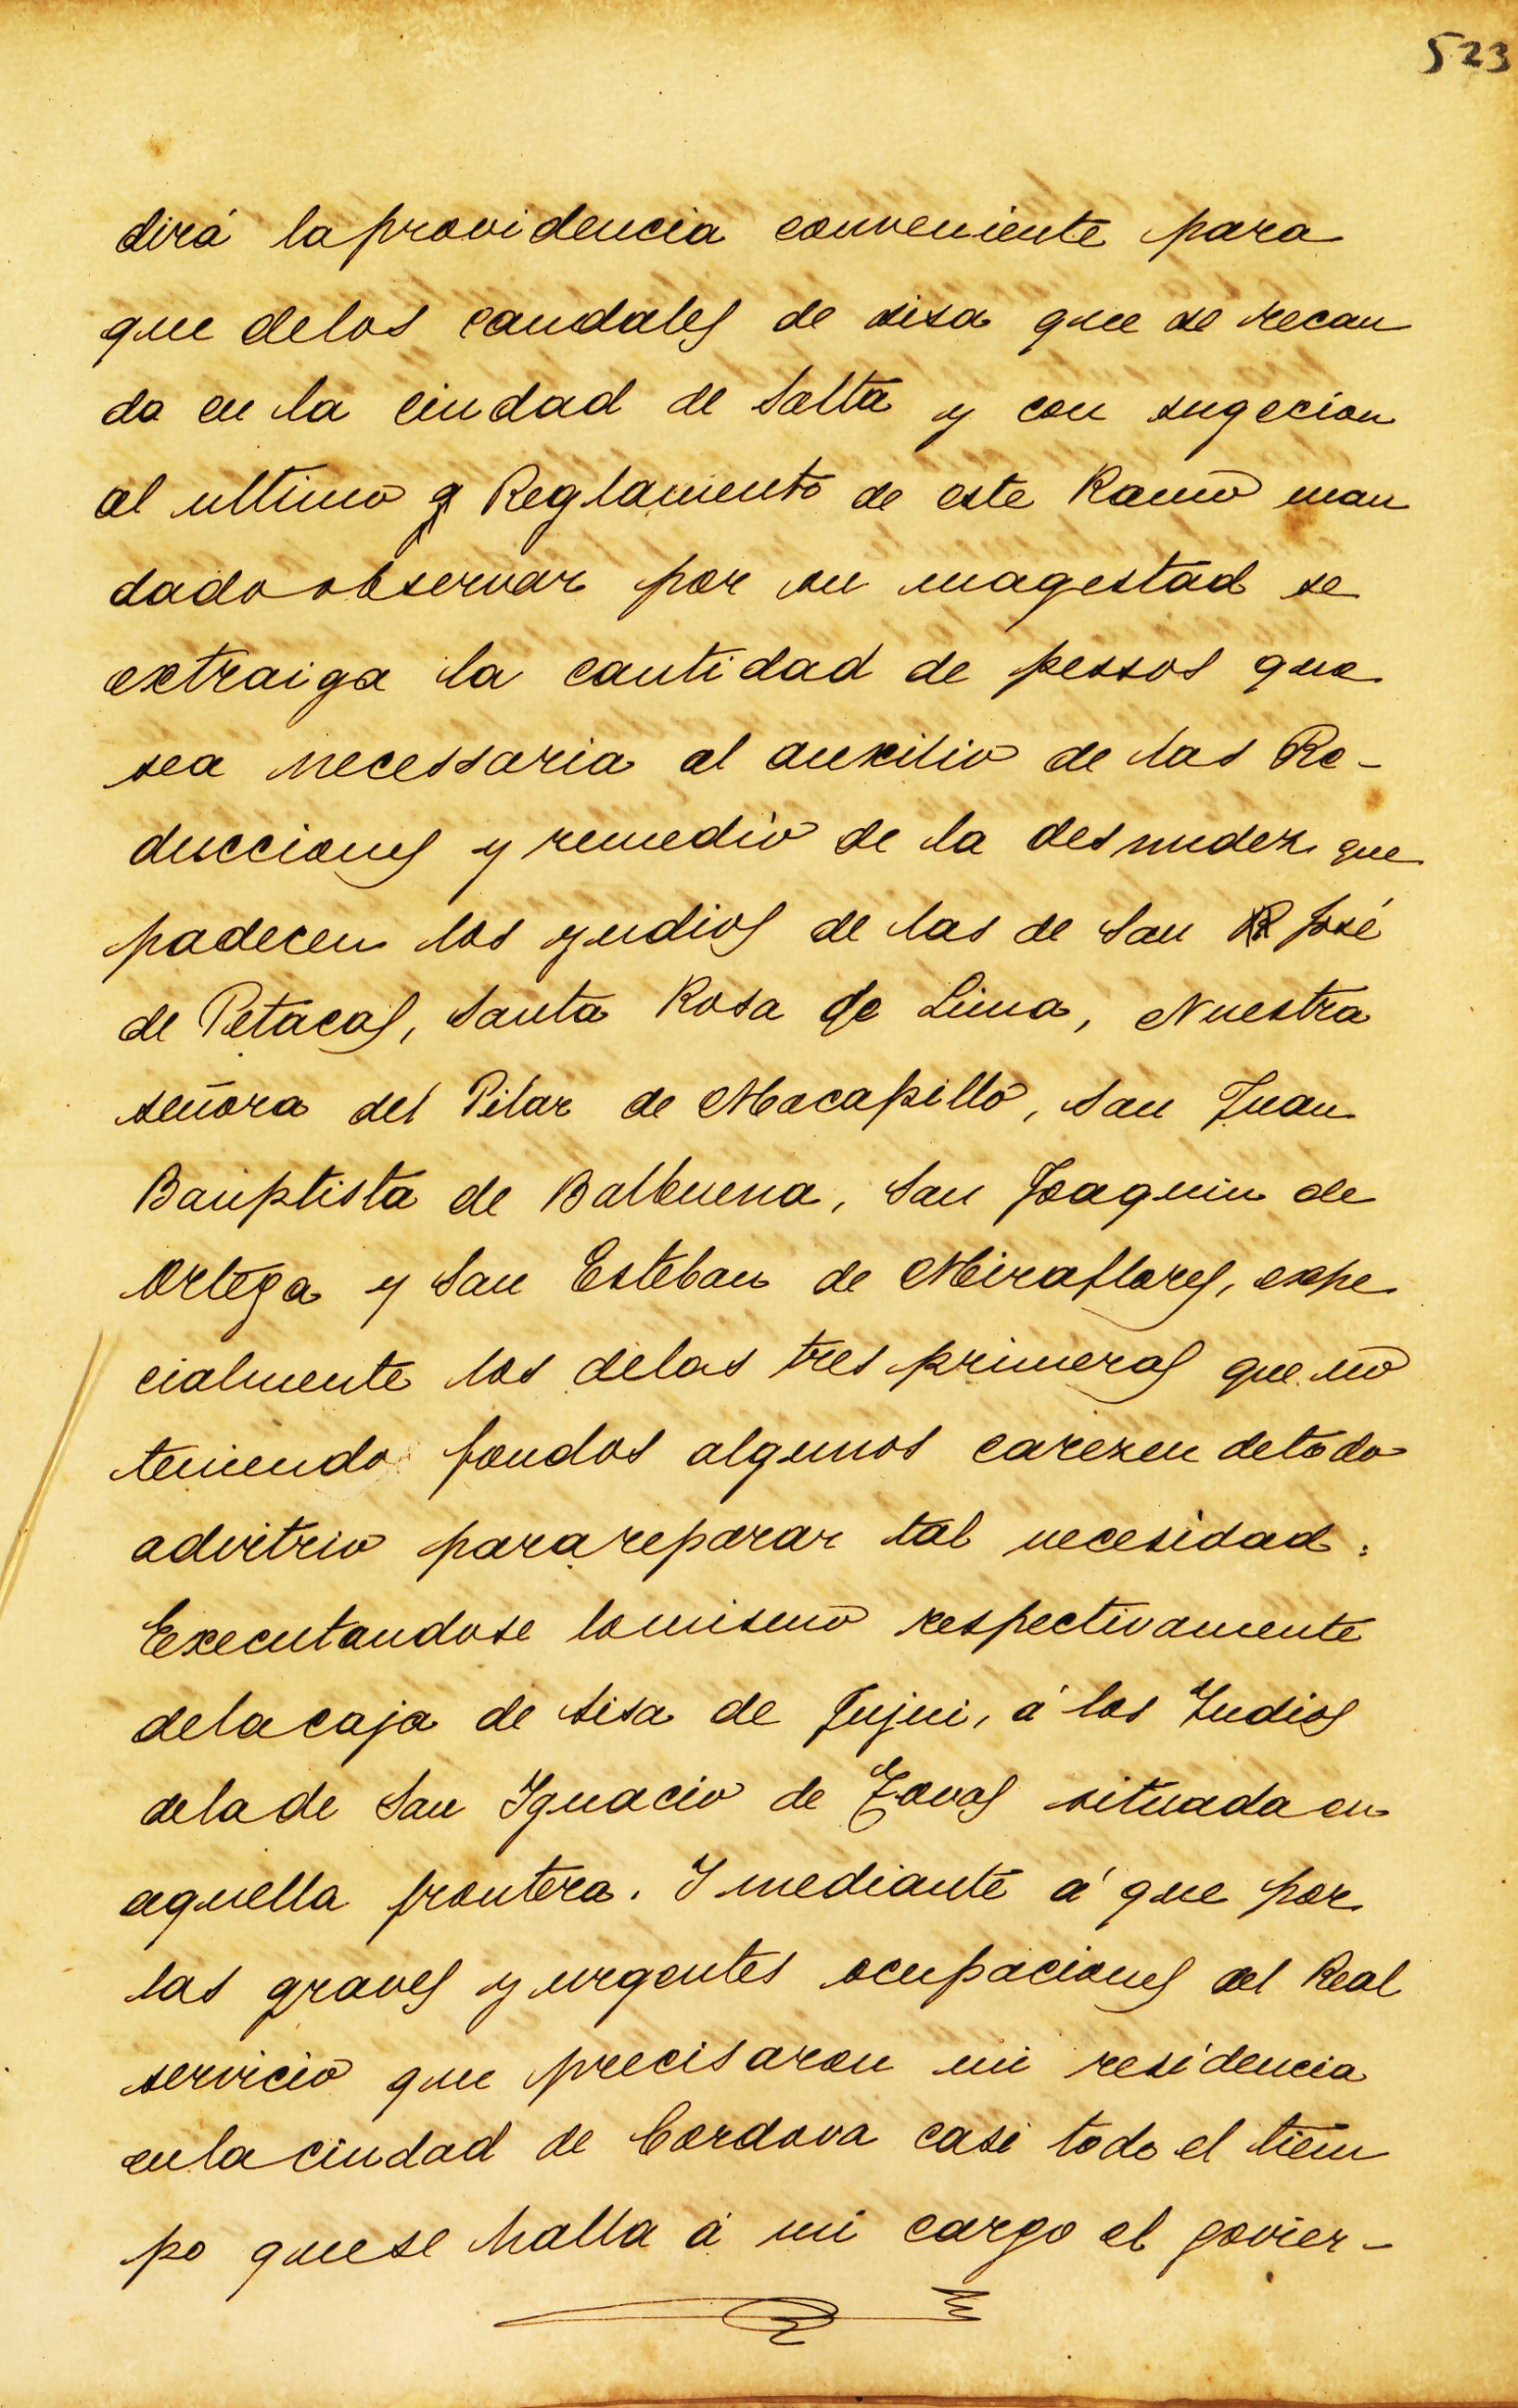 523
dirá la providencia conveniente para
que delos caudales de sisa que se recau
da en la ciudad de Salta y con sugecion
al ultimo Reglamento de este Ramo man
dado observar por su magestad se
extraiga la cantidad de pessos que
sea necessaria al auxilio de las Re-
ducciones y remedio de la desnudez que
padecen los yndios de las de San José
de Petacas, Santa Rosa de Lima, Nuestra
señora del Pilar de Macapillo, San Juan
Bauptista de Balbuena, San Joaquin de
Ortega y San Esteban de Miraflores, expe
cialmente los delas tres primeras que no
teniendo fondos algunos carezen detodo
advitrio para reparar tal necesidad:
Executandose lo mismo respectivamente
dela caja de sisa de Jujui, á los Yndios
dela de San Ygnacio de Tovas situada en
aquella frontera. Y mediante á que por
las graves y urgentes ocupaciones del Real
servicio que precisaron mi residencia
en la ciudad de Cordova casi todo el tiem
po que se halla á mi cargo el govier-